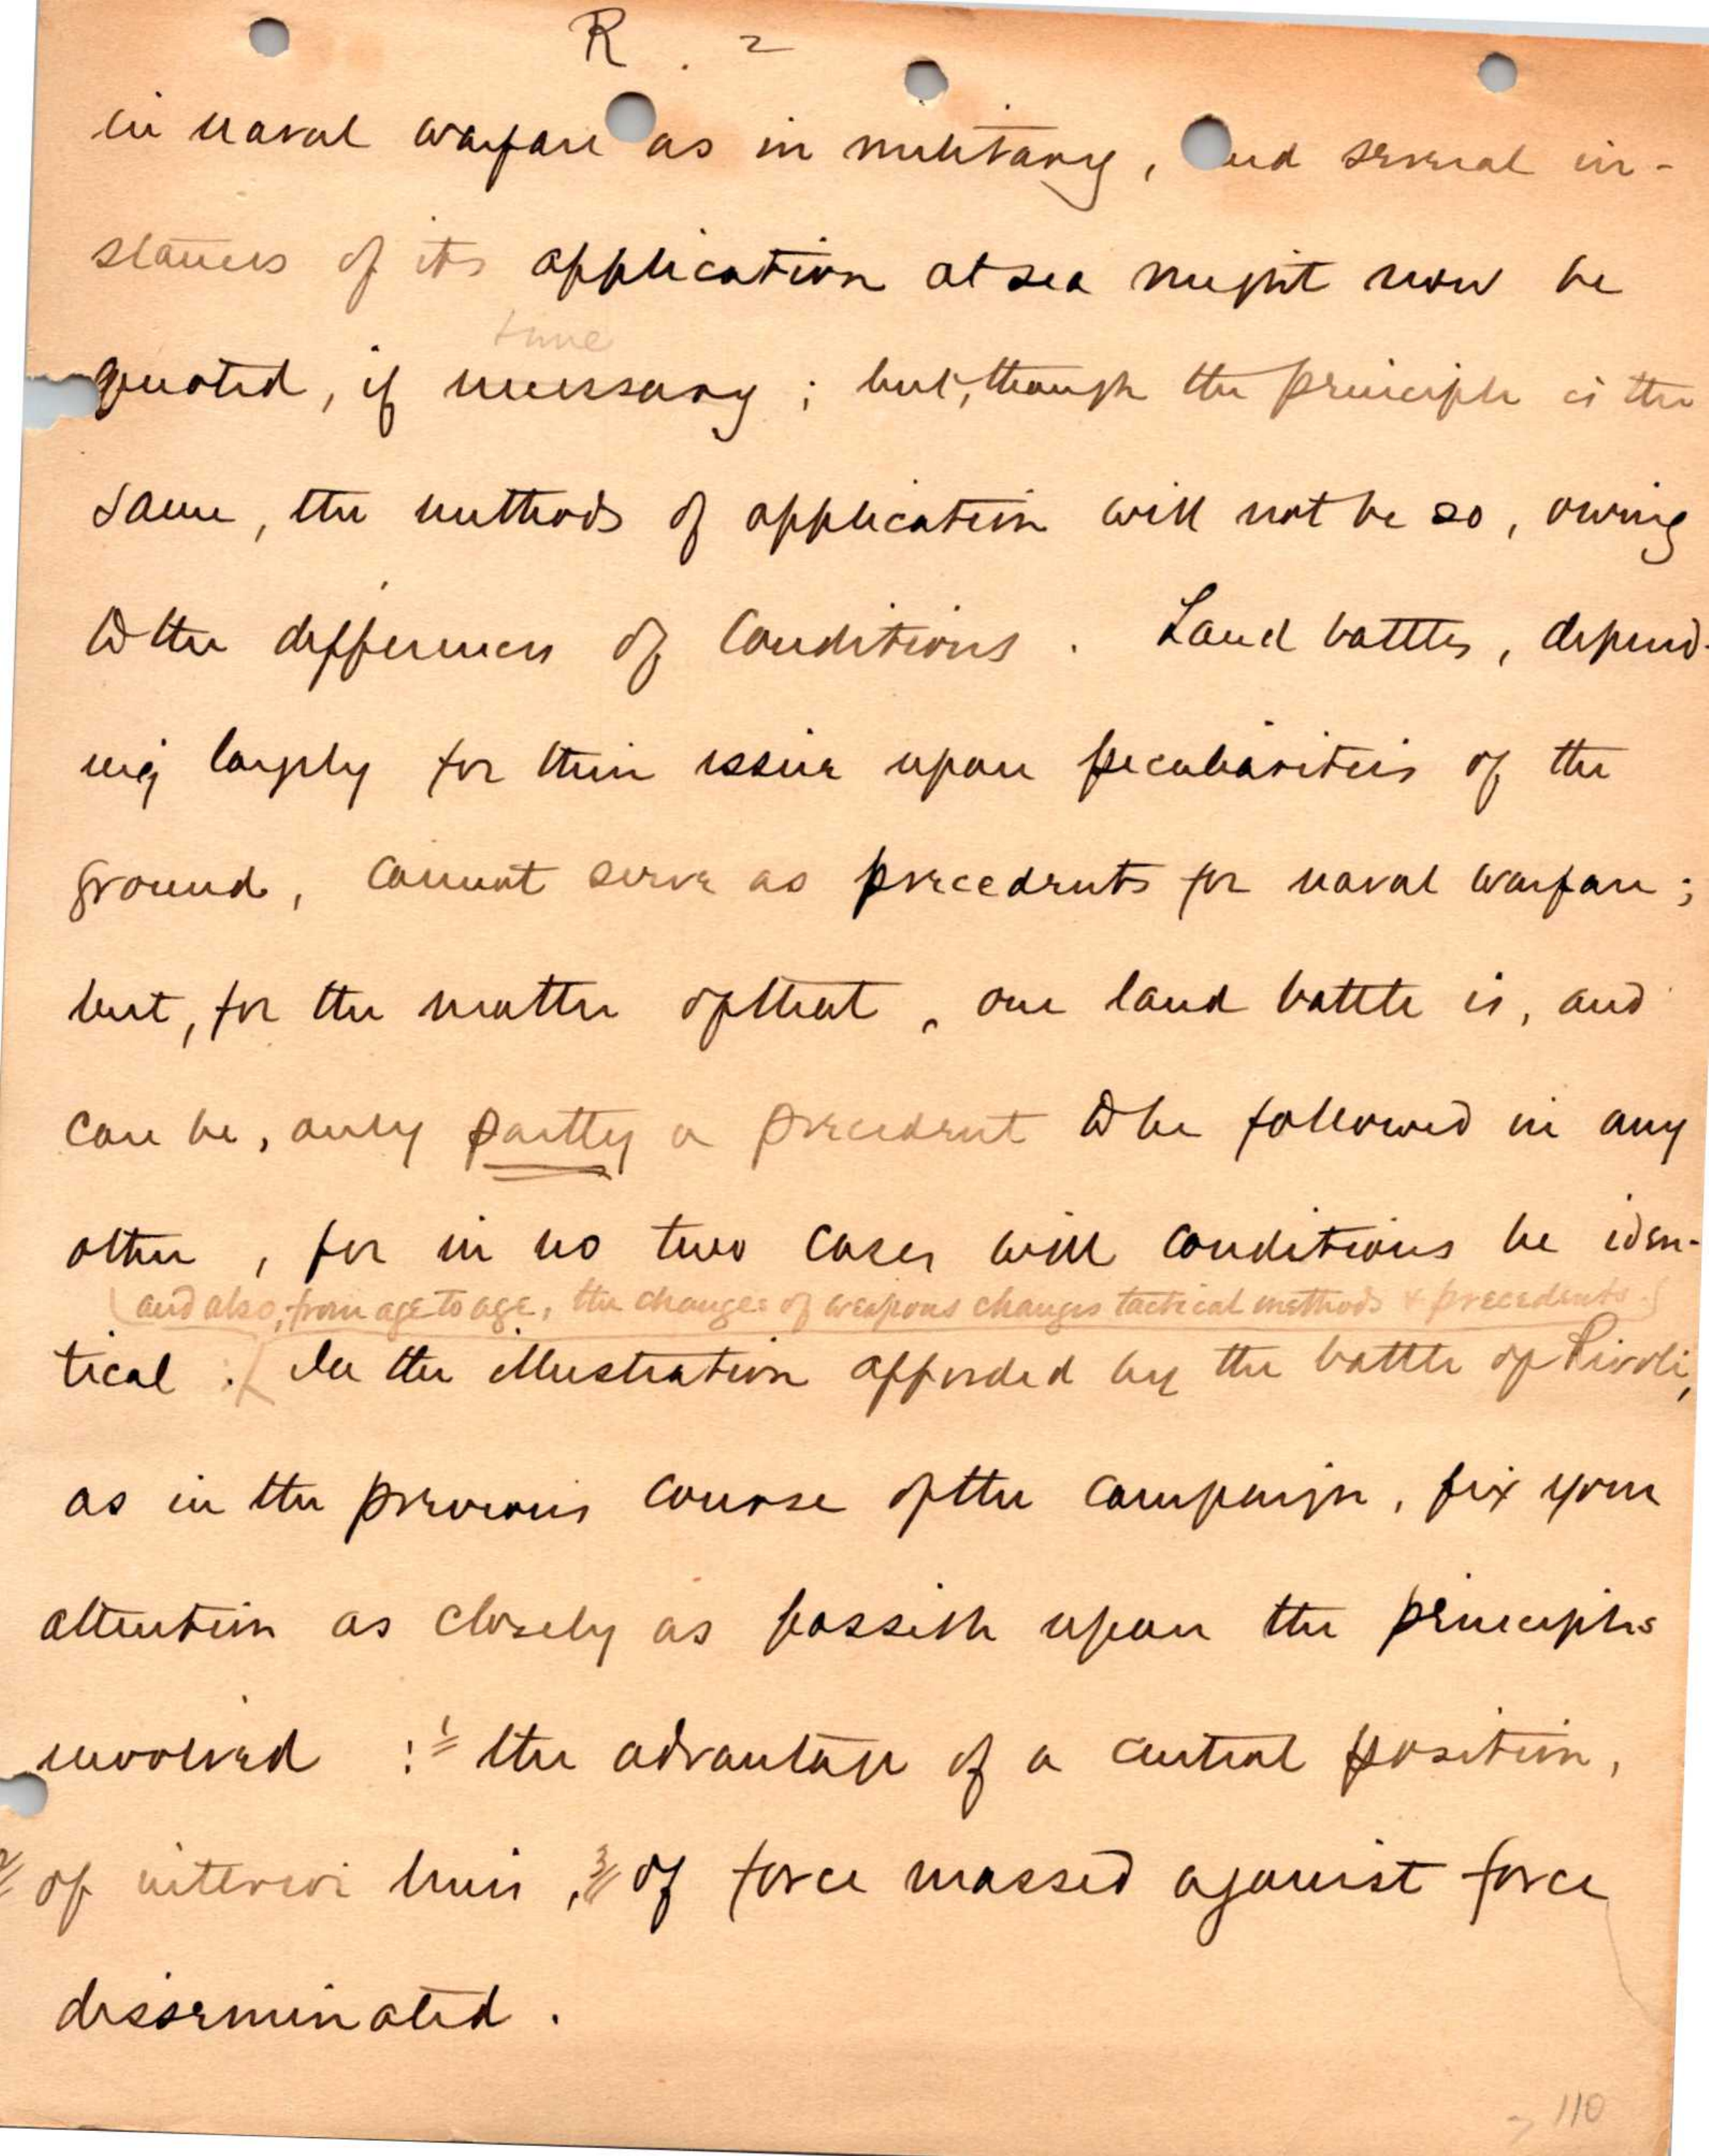 R. 2
in naval warfare as in military, and several in-
stances of its application at sea might now be
time
quoted, if necessary; but, though the principle is the
same, the methods of application will not be so, owing
to the differences of conditions. Land battles, depend-
ing largely for their issue upon peculiarities of the
ground, cannot serve as precedents for naval warfare;
but, for the matter of that, one land battle is, and
can be, only partly a precedent to be followed in any
other, for in no two cases will conditions be iden-
(and also, from age to age, the changes of weapons changes tactical methods & precedents.)
tical: In the illustration afforded by the battle of Rivoli,
as in the previous course of the campaign, fix your
attention as closely as possible upon the principles
involved: 1 the advantage of a central position,
2 of interior lines, 3 of force massed against force
disseminated.
110